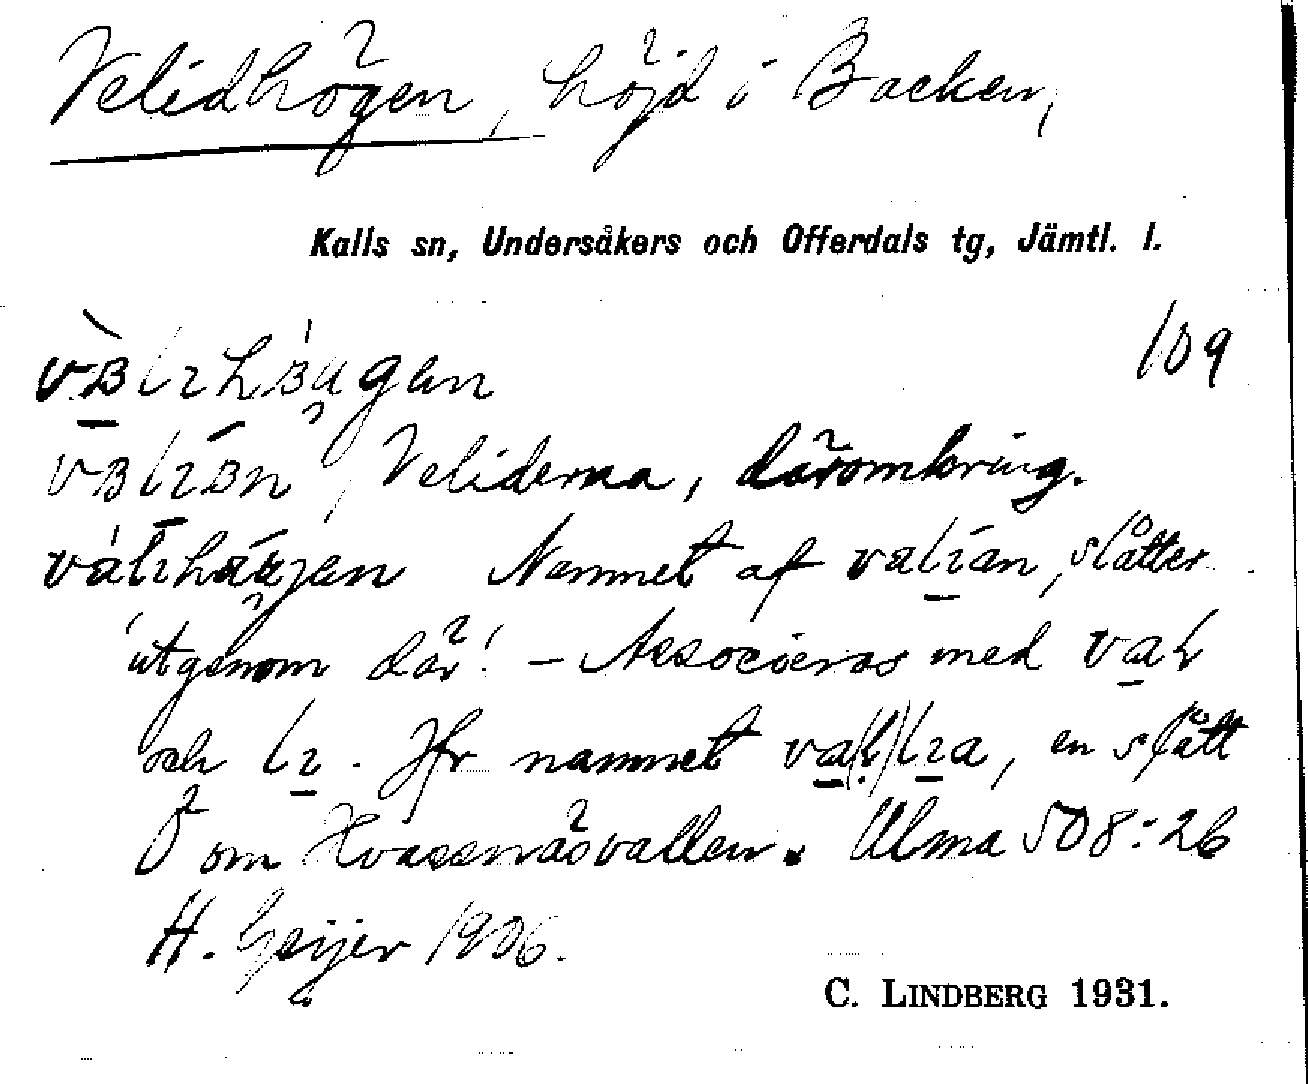 Velidhögen, höjd i Backen,
Kalls sn, Undersåkers och Offerdals tg, Jämtl. l.
109
Veliderna, däromkring.
Namnet af valıan, slåtter
utgenom där! – Associeras med val
och lı. Jfr namnet va(l)lıa, en slått
Ö om Kvassnäsvallen. Ulma 508:26
H. Geijer 1906.
C. LINDBERG 1931.